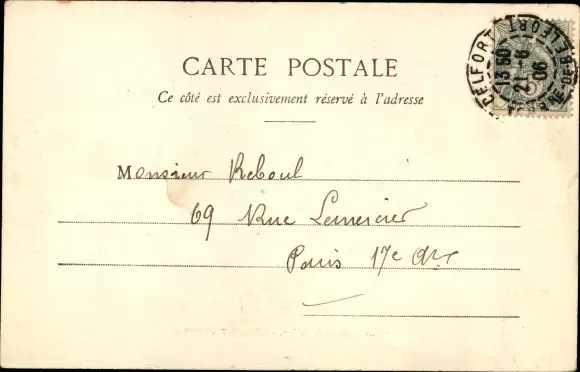 CARTE POSTALE
Ce côté est exclusivement réservé à l'adresse
Monsieur Reboul
69 Rue Lemercier
Paris 17e Arr
BELFORT
BELFORT
13 50
21 -6
06